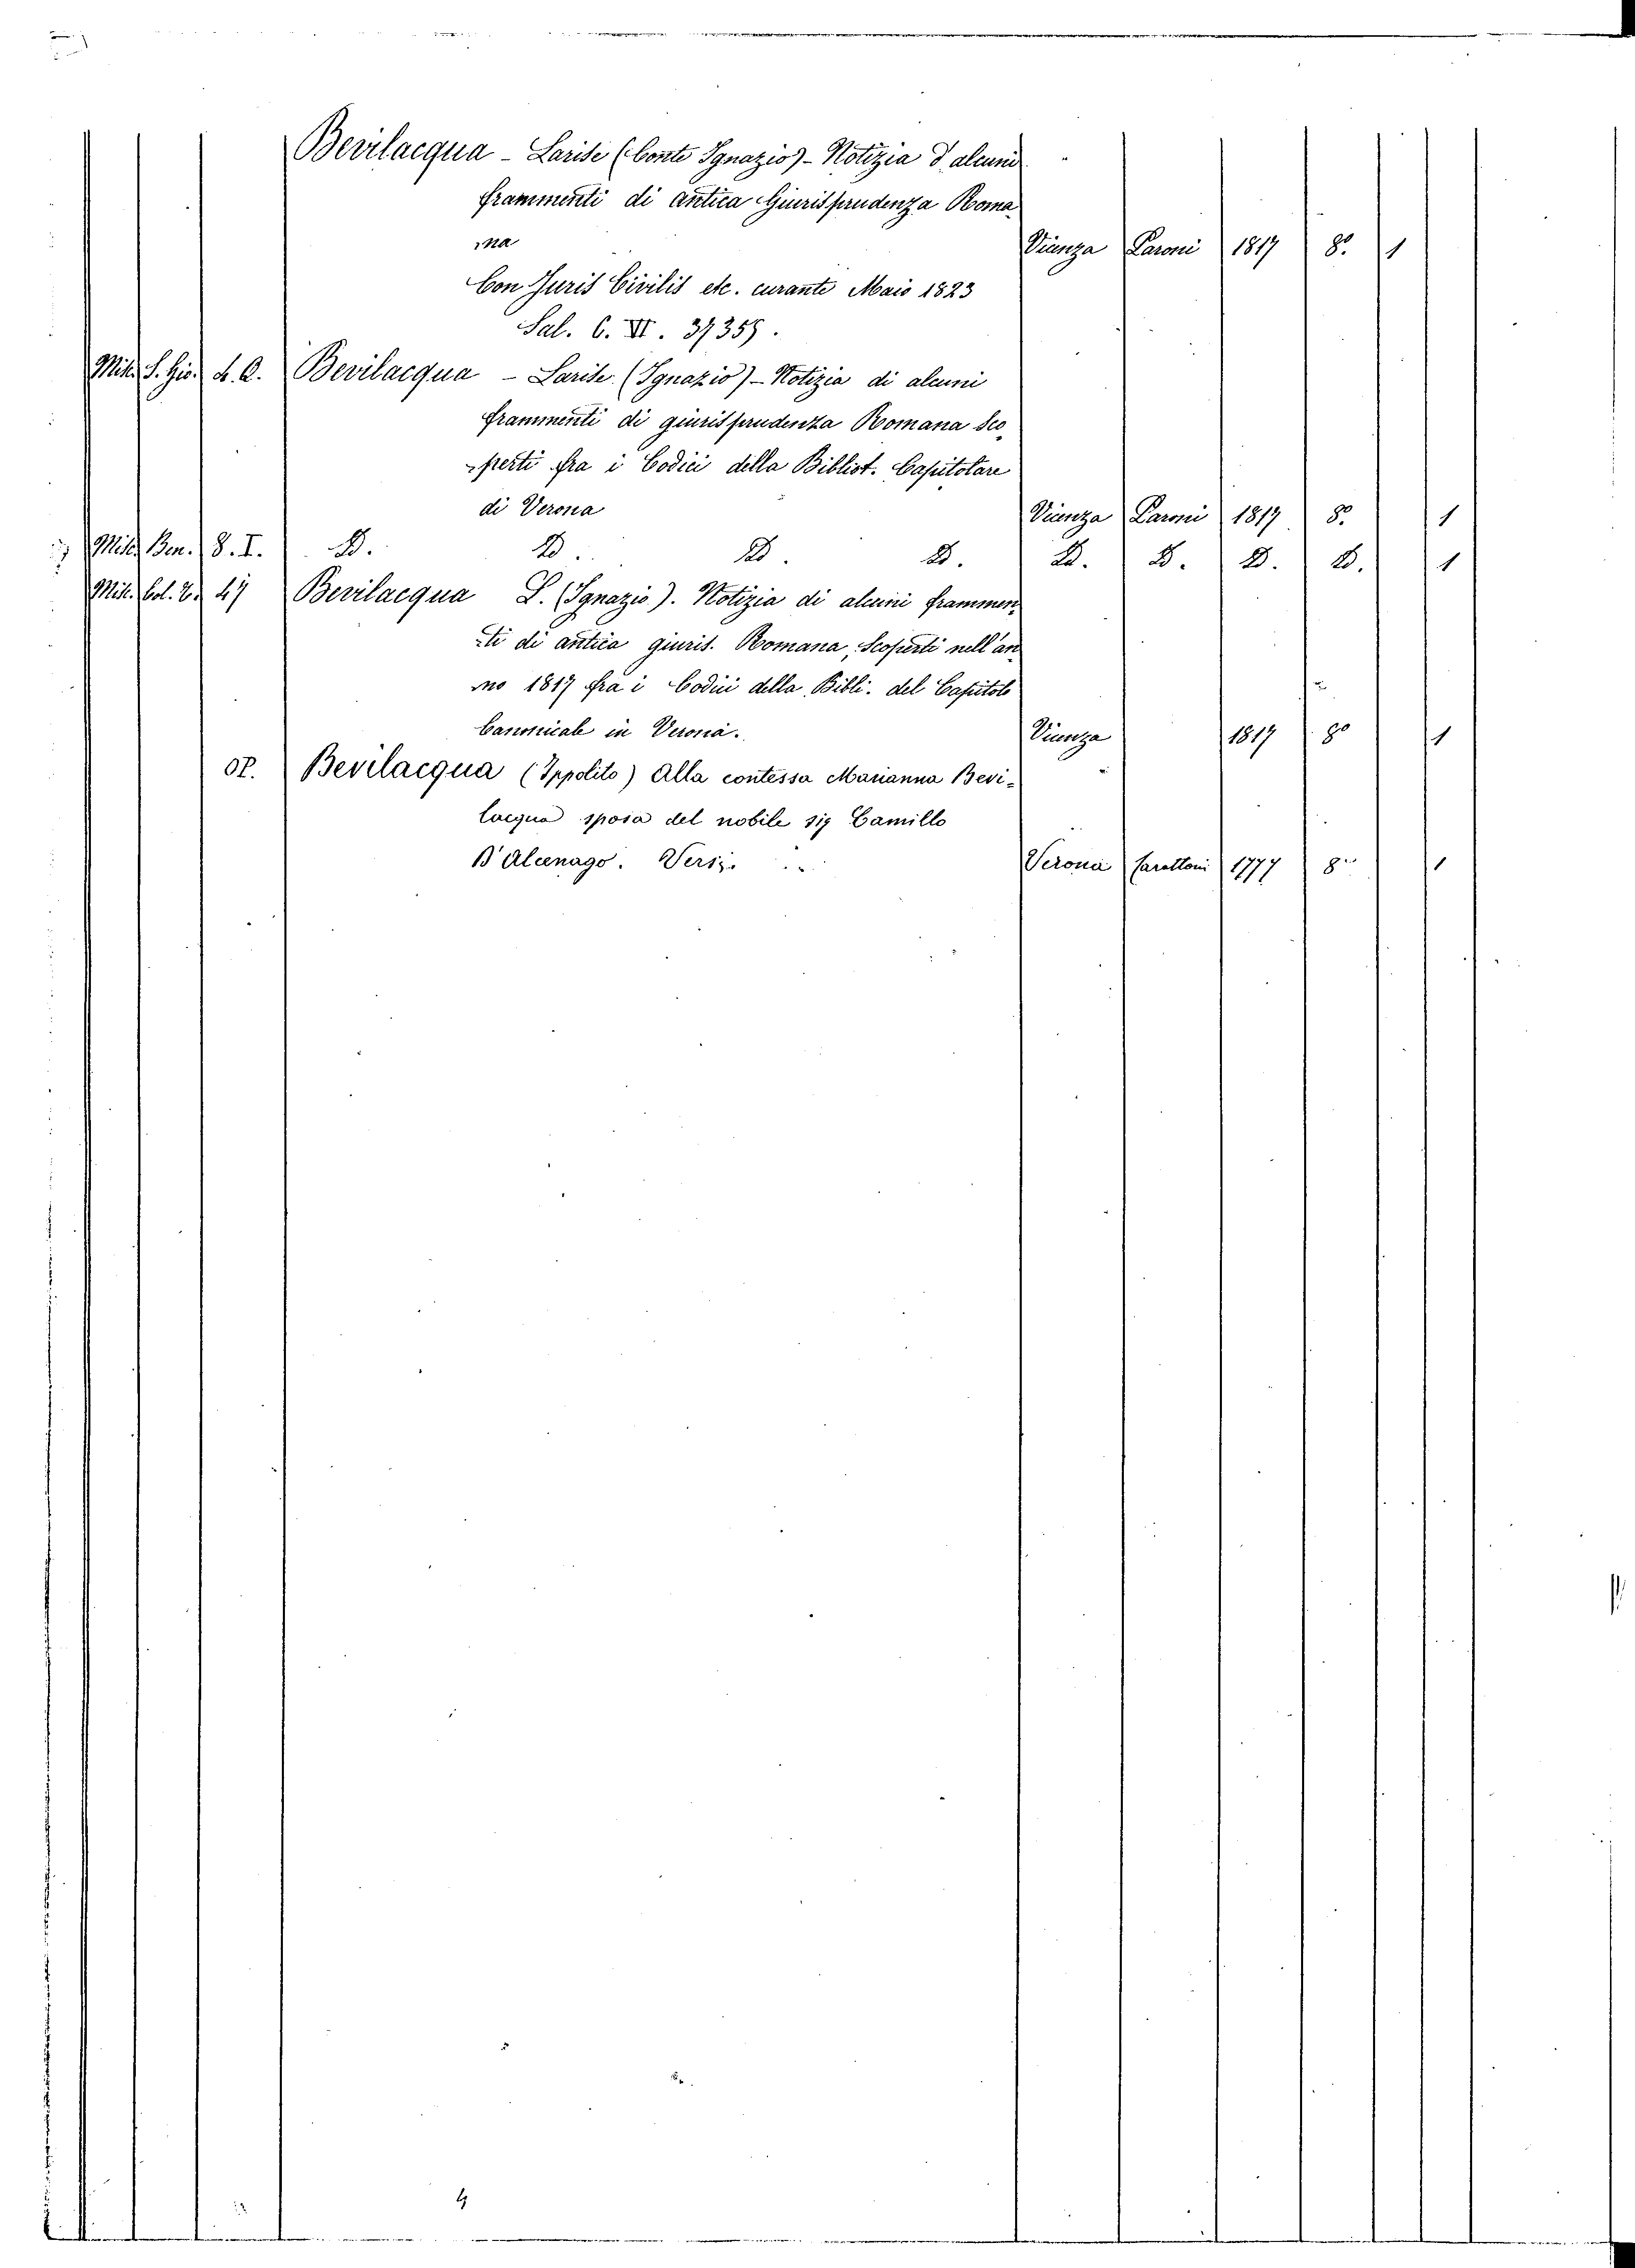 Bevilacqua - Larise (Conte Ignazio) - Notizia d'alcuni
frammenti di antica Giurisprudenza Roma
na Vicenza Paroni 1817 8.º 1
Con Juris Civilis etc. curante Maio 1823
Sal. C. VI. 37359.
Misc. S. Gio. Bevilacqua - Larise (Ignazio) - Notizia di alcuni
frammenti di giurisprudenza Romana Sco
perti fra i Codici della Bibliot. Capitolare
di Verona Vicenza Paroni 1817 8.º 1
Misc. Ben. 8. I. D. D. D. D. D. D. D. D. 1
Misc. Col. 47 Bevilacqua L. (Ignazio). Notizia di alcuni frammen
ti di antica giuris. Romana, Scoperti nell'an
no 1817 fra i Codici della Bibli. del Capitolo
Canonicale in Verona. Vicenza 1817 8º 1
OP. Bevilacqua (Ippolito) Alla contessa Marianna Bevi-
lacqua sposa del nobile sig Camillo
D'Alcenago. Versi. Verona Carattoni 1777 8º 1